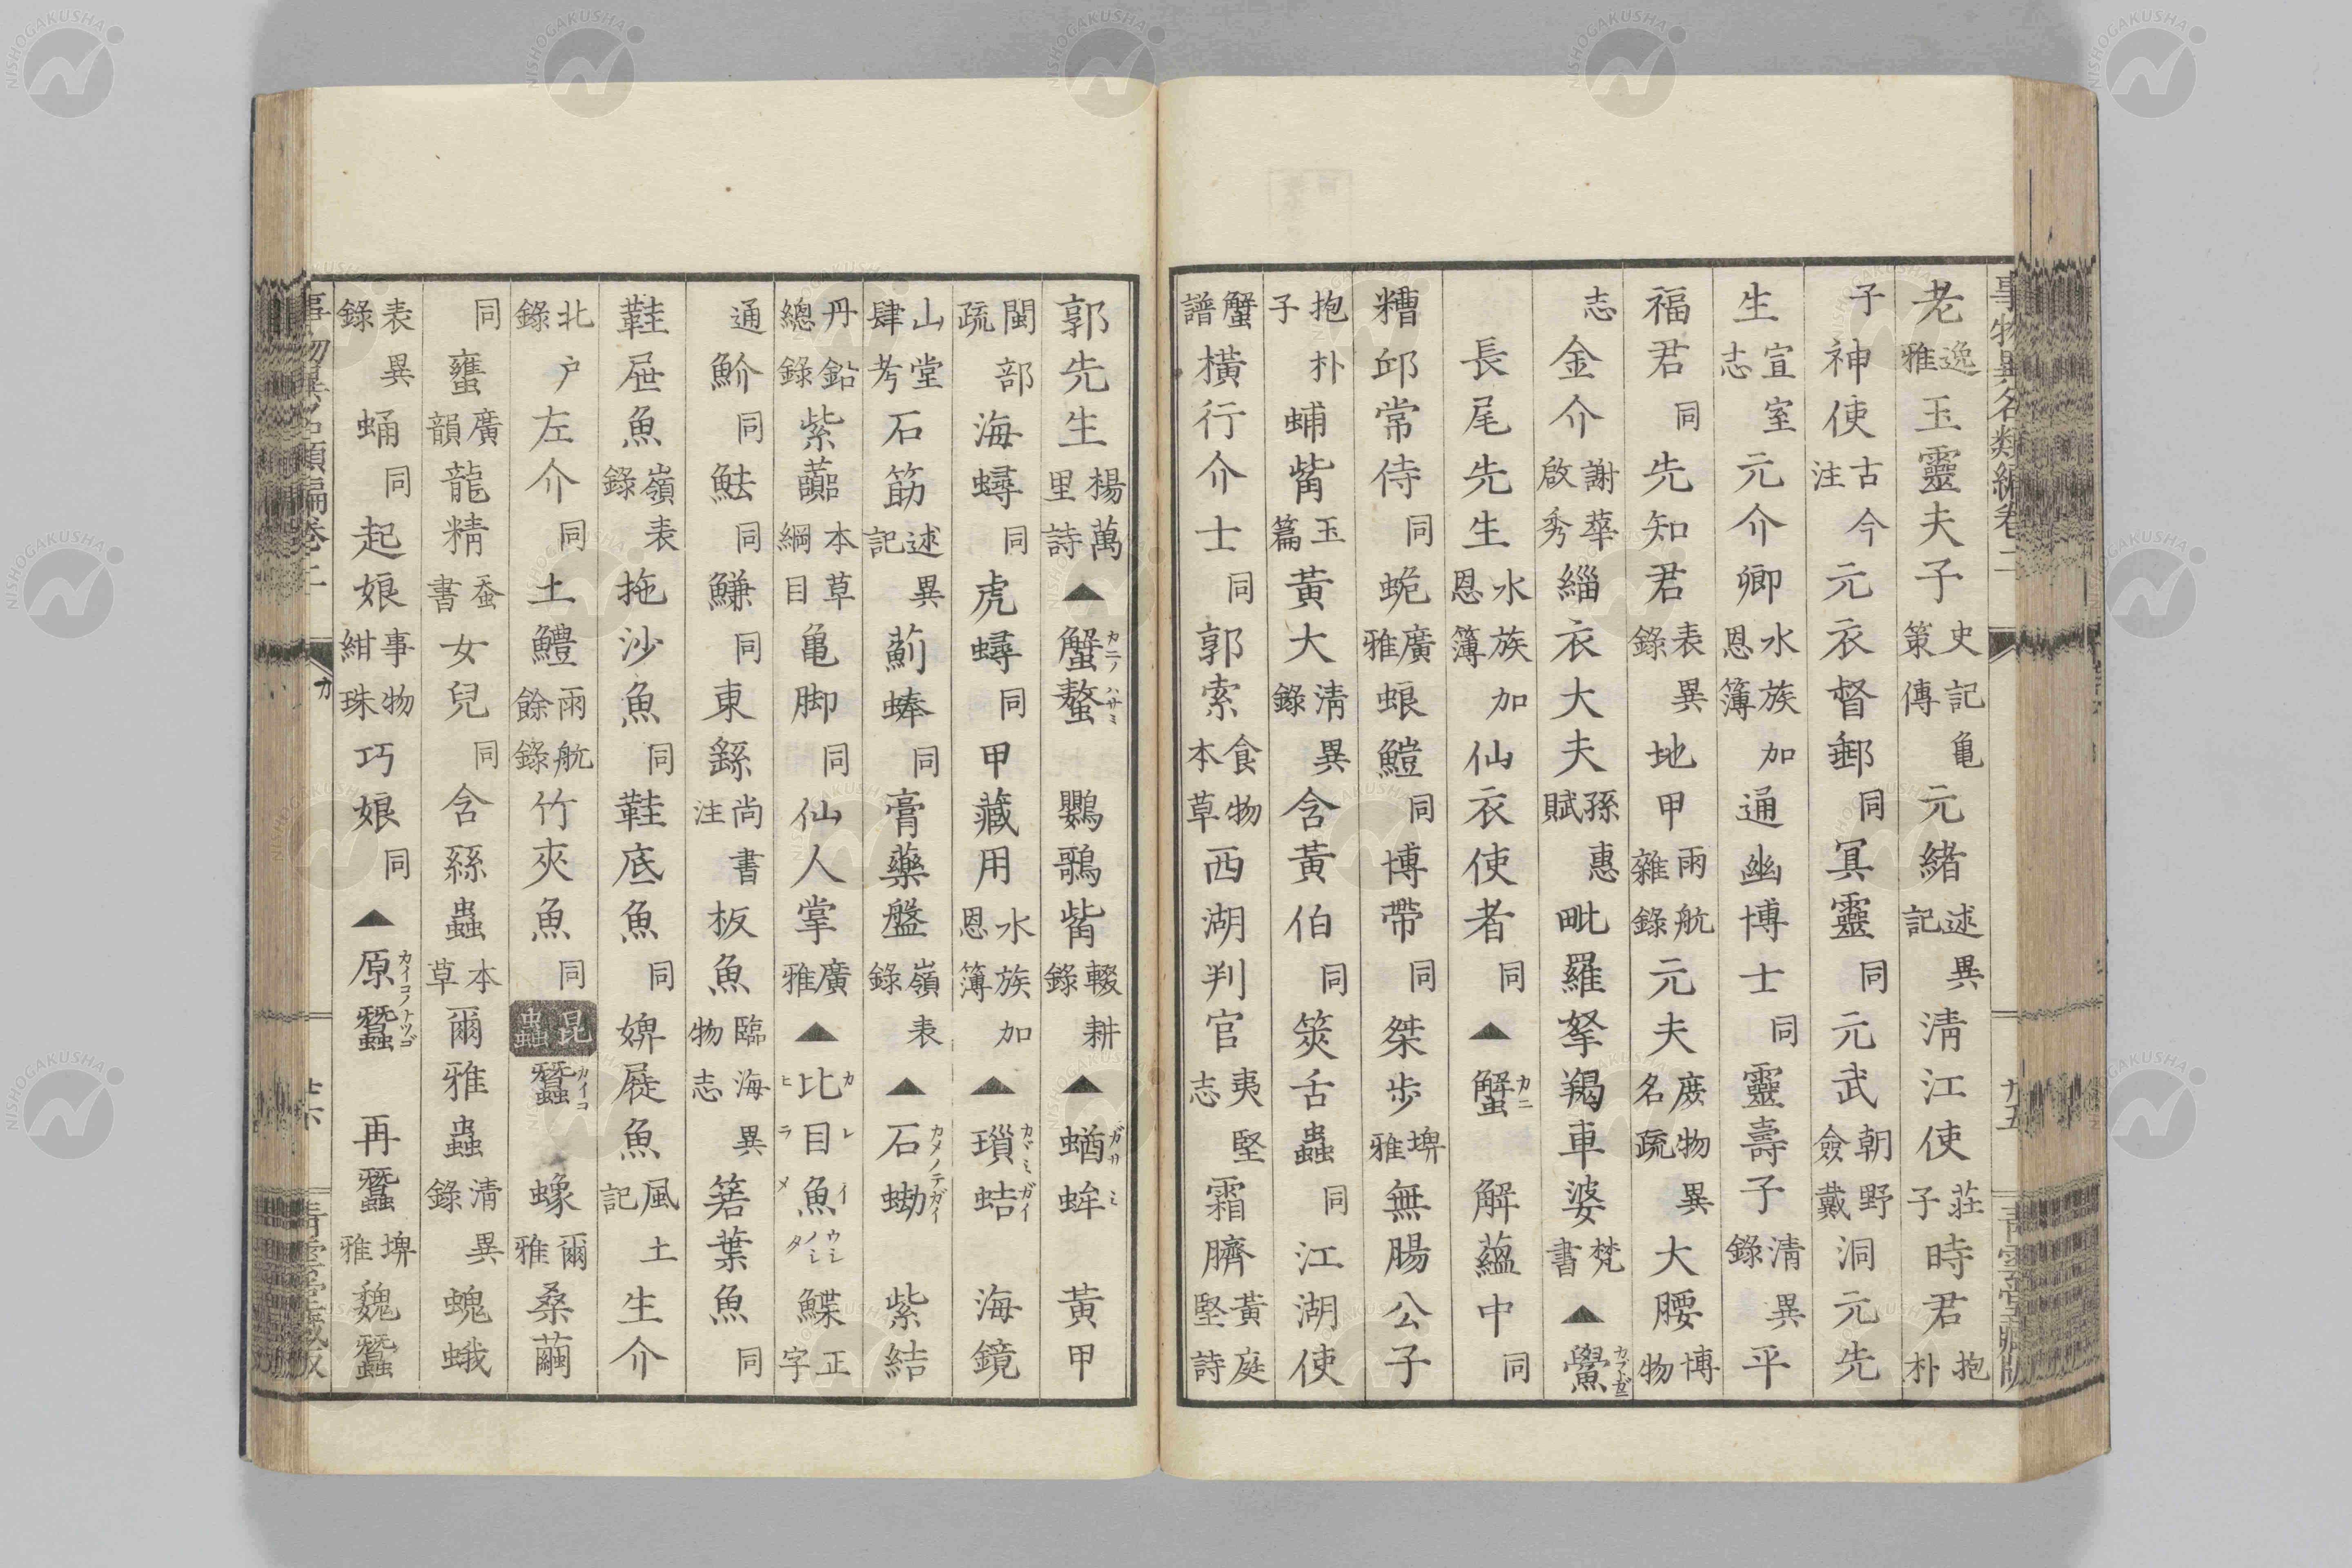 事物異名類編卷二
九五
青雲堂藏版
老逸雅玉靈夫子史記龜策傳元緒述異記清江使莊子時君抱朴
子神使古今注元衣督郵同冥靈同元武朝野僉戴洞元先
生宣室志元介卿水族加恩簿通幽博士同靈壽子清異錄平
福君同先知君表異錄地甲雨航雜錄元夫庶物異名疏大腰博物
志金介謝華啟秀緇衣大夫孫惠賦毗羅拏羯車婆梵書▲鱟カブトガニ
長尾先生水族加恩簿仙衣使者同▲蟹カニ解蘊中同
糟邱常侍同蛫廣雅蜋鱧同博帶同桀步埤雅無腸公子
抱朴子蜅觜玉篇黃大清異錄含黃伯同筴舌蟲同江湖使
蟹譜橫行介士同郭索食物本草西湖判官夷堅志霜臍黃庭堅詩
郭先生楊萬里詩▲蟹螯カニノハサミ鸚鵡觜輟耕錄▲蝤蛑ガザミ黃甲
閩部疏海蟳同虎蟳同甲藏用水族加恩簿▲瑣蛣カヾミガイ海鏡
山堂肆考石筯述異記薊蜯同膏藥盤嶺表錄▲石蜐カメノテガイ紫結
丹鉛總錄紫虈本草綱目龜脚同仙人掌廣雅▲比目魚カレイヒラメウシノシタ鰈正字
通魪同魼同鰜同東鰩尚書注板魚臨海異物志箬葉魚同
鞋屜魚嶺表錄拖沙魚同鞋底魚同婢屣魚風土記生介
北戶錄左介同土鱧雨航餘錄竹夾魚同昆蟲蠶カイコ蟓爾雅桑繭
同䖸廣韻龍精蚕書女兒同含絲蟲本草爾雅蟲清異錄螝蛾
表異錄蛹同起娘事物紺珠巧娘同▲原蠶カイコノナツゴ再蠶埤雅魏蠶
事物異名類編卷二
カ
青雲堂藏版